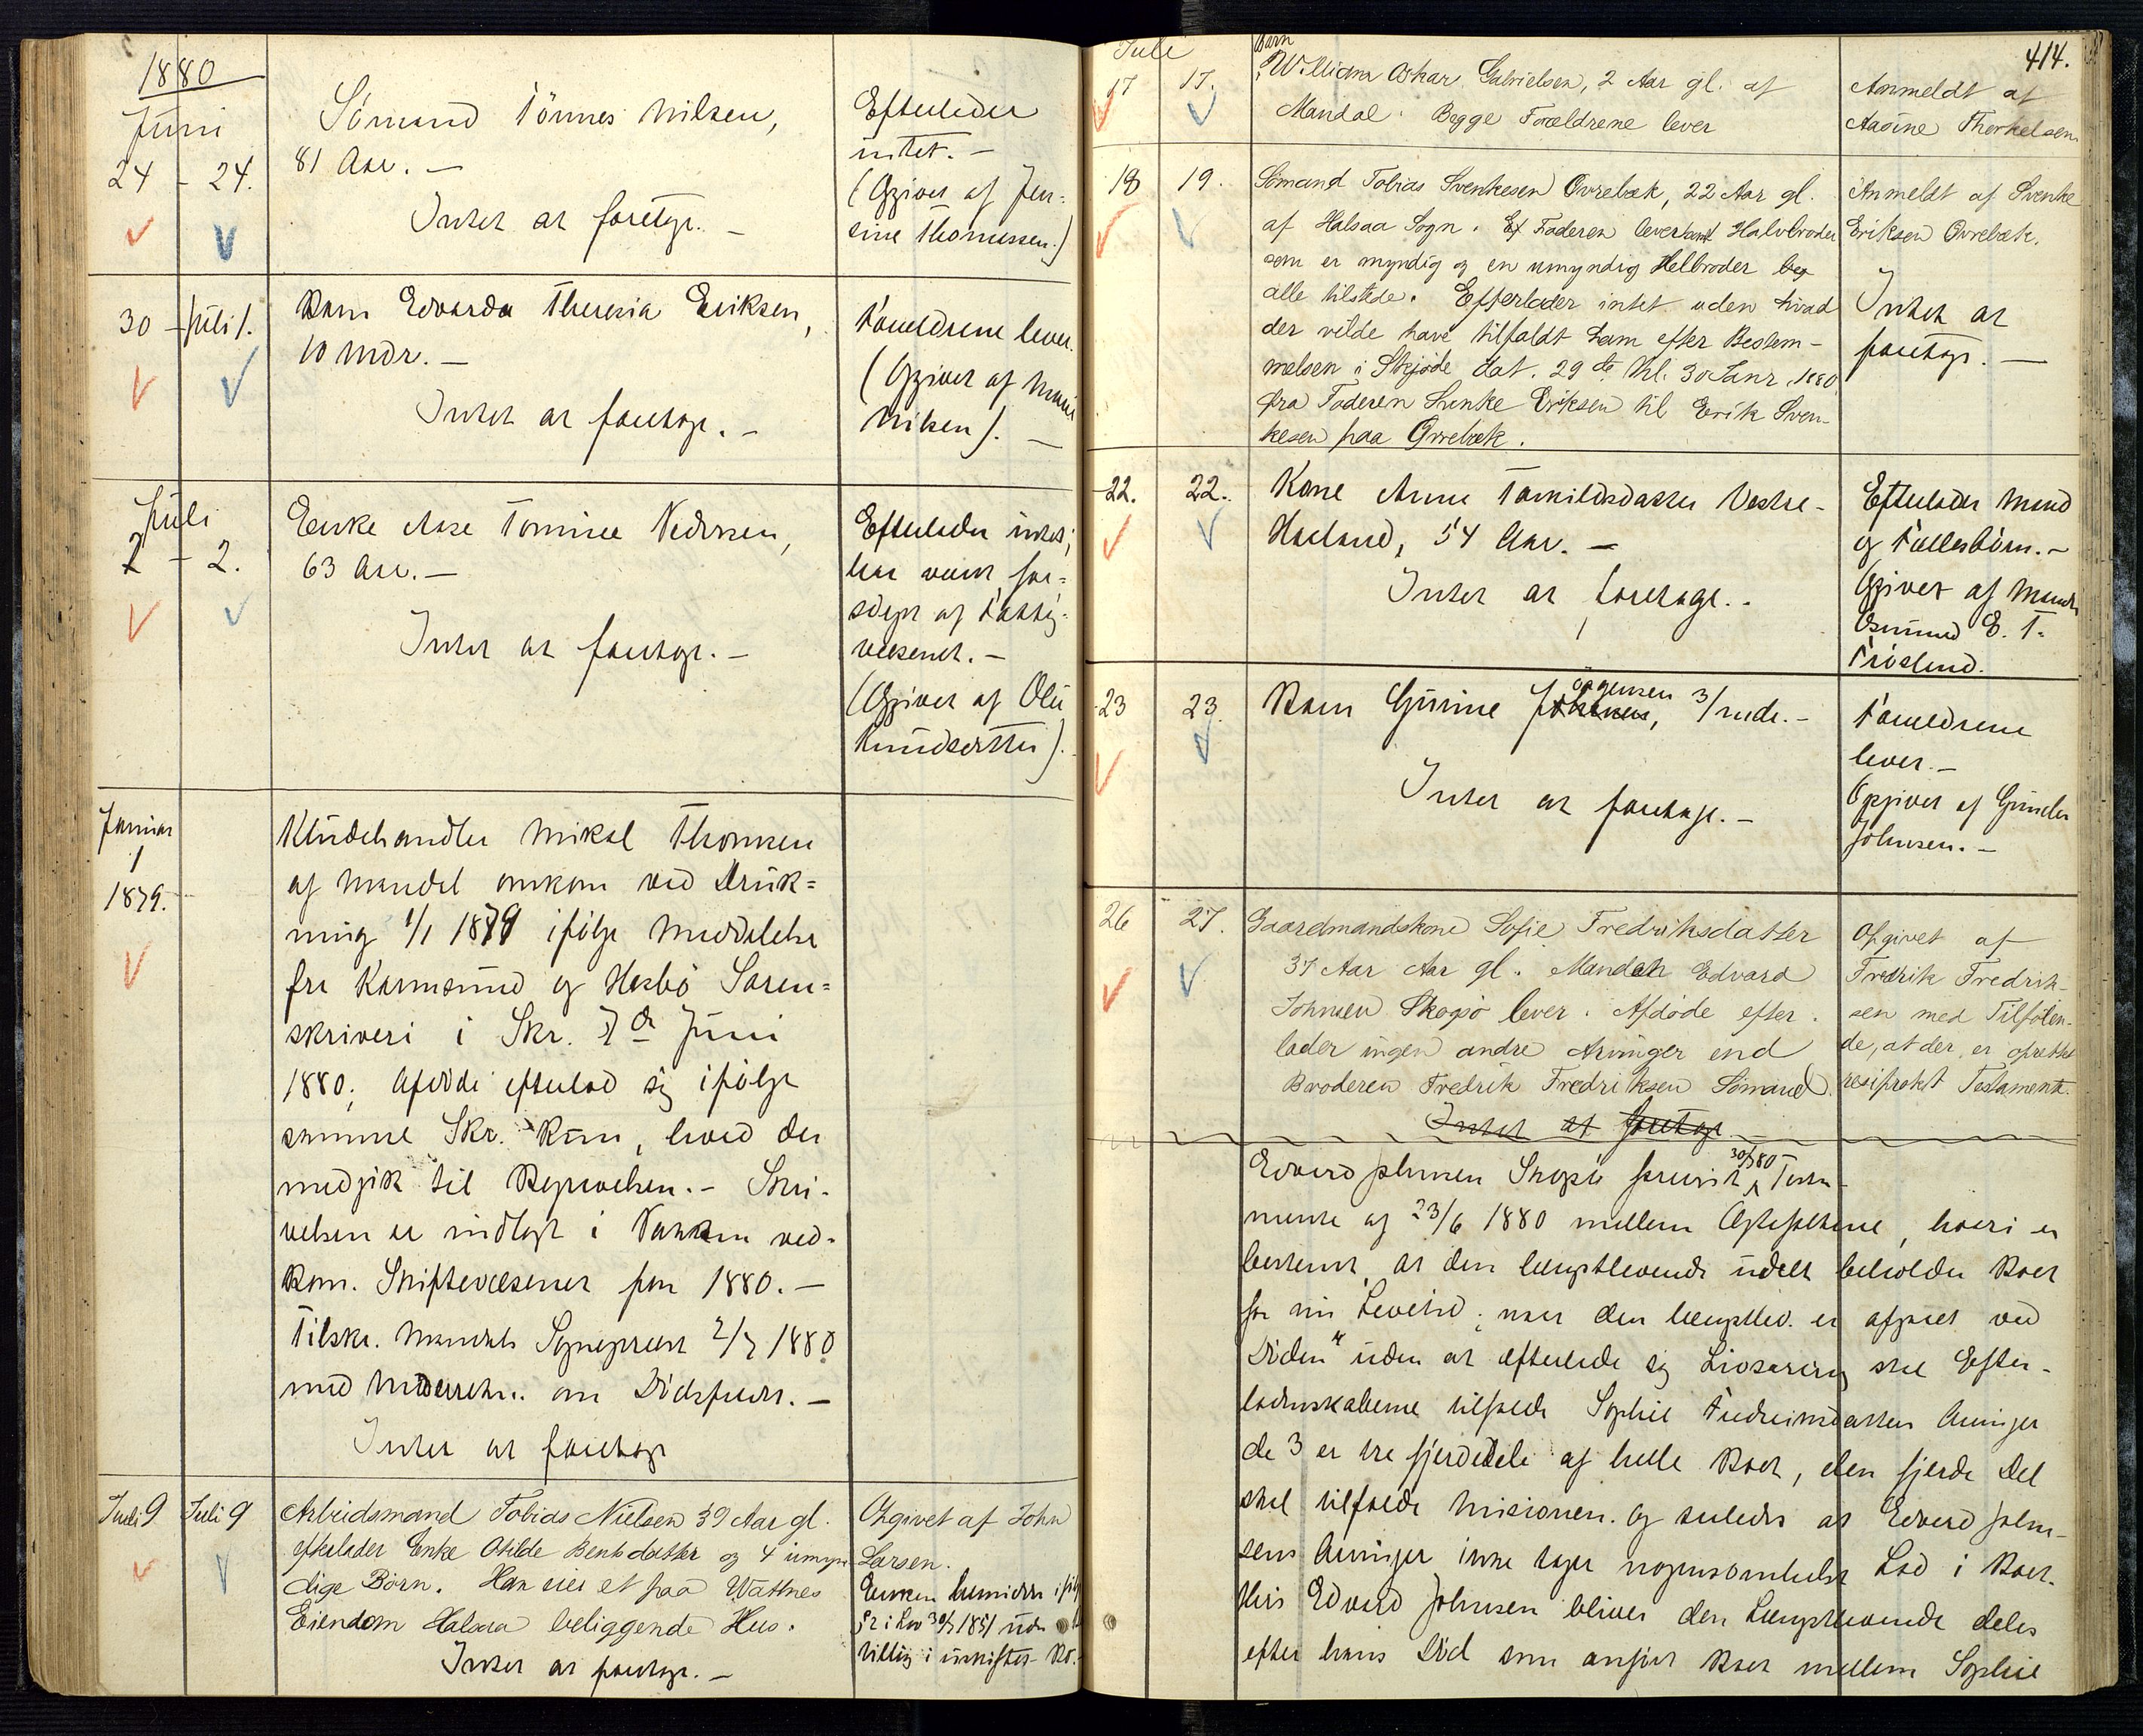 1880
Juni
24 - 24.
Sömand Tönnes Nilsen,
81 Aar. -
Intet at foretage. -
Efterlader
intet. -
(Opgivet af Jen-
sine Thomassen.)
30 - Juli 1.
Barn Edvarda Theresia Eriksen,
10 Mdr. -
Intet at foretage. -
Forældrene lever.
(Opgivet af
Nilsen). -
Juli
2 - 2.
Enke Aase Tomine Pedersen,
63 Aar. -
Intet at foretage. -
Efterlader intet;
har været for-
sörget af Fattig-
væsenet. -
(Opgivet af Ole
Knudsen).
Januar
1
1879.
Kludehandler Mikal Thomsen
af Mandal omkom ved Druk-
ning 1/1 1879 ifölge Meddelelse
fra Karmsund og Hesbö Soren-
skriveri i Skr. 7de Juni
1880; Afdöde efterlod sig ifölge
samme Skr. kun, hvad der
medgik til Begravelsen. - Skri-
velsen er indlagt i Pakken ved-
kom. Skiftevæsenet for 1880. -
Tilskr. Mandals Sognepræst 2/7 1880
med Underretn. om Dödsfaldet. -
Intet at foretage
Juli 9 Juli 9
Arbeidsmand Tobias Nielsen 39 Aar gl.
efterlader Enke Otilde Bentsdatter og 4 umyn-
dige Börn. Han eier et paa Wattnes
Eiendom Halsaa beliggende Hus.
Intet at foretage. -
Opgivet af John
Larsen.
Enken hensidder ifölg
§ 2 i Lov 30/7 1851 uden
Villig i uskiftet Bo.
414.
Juli
17 17.
Barn
William Oskar Gabrielsen, 2 Aar gl. af
Mandal. Begge Forældrene lever
Anmeldt af
Aasine Therkelsen
18 19.
Sömand Tobias Svenkesen Övrebæk, 22 Aar gl.
af Halsaa Sogn. Faderen lever samt Halvbroder
som er myndig og en umyndig Helbroder
alle tilstede. Efterlader intet uden hvad
der vilde have tilfaldt ham efter Bestem-
melsen i Skjöde dat. 29de Thl. 30 Janr. 1880
fra Faderen Svenke Eriksen til Eerik Sven-
kesen paa Övrebæk.
Anmeldt af Svenke
Eriksen Övrebæk.
Intet at
foretage. -
22. 22.
Kone Anne Tarkildsdatter Vestre-
Haaland, 54 Aar. -
Intet at foretage. -
Efterlader Mand
og Fællesbörn. -
Opgivet af Manden
Osmund E. T.
Fröslund.
23 23.
Barn Gurine Jörgensen, 3/ mdr. -
Intet at foretage. -
Forældrene
lever. -
Opgivet af Gunder
Johnsen. -
26 27.
Gaardmandskone Sofie Fredriksdatter
37 Aar Aar gl. Manden Edvard
Johnsen Skogsö lever. Afdöde efter-
lader ingen andre Arvinger end
Broderen Fredrik Fredriksen Sömand.
Intet at foretage
Opgivet af
Fredrik Fredrik-
sen med Tilföien-
de, at der er oprettet
resiprokt Testament.
Edvard Johnsen Skogsö foreviste 30/7 80 Testa-
mente af 23/6 1880 mellem Ægtefolkene, hvori er
bestemt, at den længstlevende udelt beholder Boet
for sin Levetid; naar den længstlev. er afgaaet ved
Döden uden at efterlade sig Livsarving skal Efter-
ladenskaberne tilfalde Sophie Fredriksdatters Arvinger
de 3 er tre fjerdedele af hele Boet, den fjerde Del
skal tilfalde Missionen. Og saaledes at Edvard John-
sens Arvinger ikke tager nogensomhelst Lod i Boet.
Hvis Edvard Johnsen bliver den Længstlevende deles
efter hans Död som anfört Boet mellem Sophie